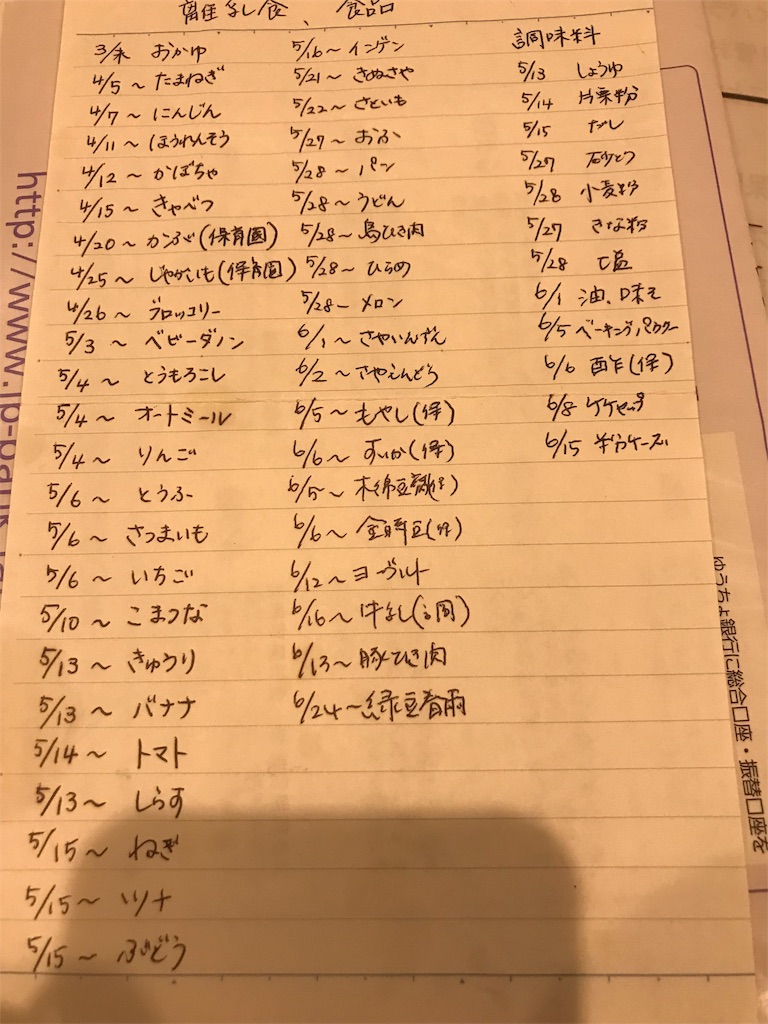 離乳食、食品
3/末 おかゆ
4/5 ～ たまねぎ
4/7 ～ にんじん
4/11 ～ ほうれんそう
4/12 ～ かぼちゃ
4/15 ～ きゃべつ
4/20 ～ かぶ(保育園)
4/25 ～ じゃがいも(保育園)
4/26 ～ ブロッコリー
5/3 ～ ベビーダノン
5/4 ～ とうもろこし
5/4 ～ オートミール
5/4 ～ りんご
5/6 ～ とうふ
5/6 ～ さつまいも
5/6 ～ いちご
5/10 ～ こまつな
5/13 ～ きゅうり
5/13 ～ バナナ
5/14 ～ トマト
5/13～ しらす
5/15 ～ ねぎ
5/15～ ツナ
5/15 ～ ぶどう
5/16～ インゲン
5/21～ きぬさや
5/22～ さといも
5/27～ おふ
5/28～ パン
5/28～ うどん
5/28～ 鳥ひき肉
5/28～ ひらめ
5/28ー メロン
6/1～さやいんげん
6/2～さやえんどう
6/5～もやし(保)
6/6～ すいか(保)
6/5～ 木綿豆腐(保)
6/6～ 金時豆(保)
6/12～ヨーグルト
6/16～牛乳(調)
6/13～豚ひき肉
6/24～緑豆春雨
調味料
5/13 しょうゆ
5/14 片栗粉
5/15 だし
5/27 砂とう
5/28 小麦粉
5/27 きな粉
5/28 塩
6/1 油、味そ
6/5 ベーキングパウダー
6/6 酢(保)
6/8 ケチャップ
6/15 粉チーズ
http://www.jp-bank.ja
ゆうちょ銀行に総合口座・振替口座を